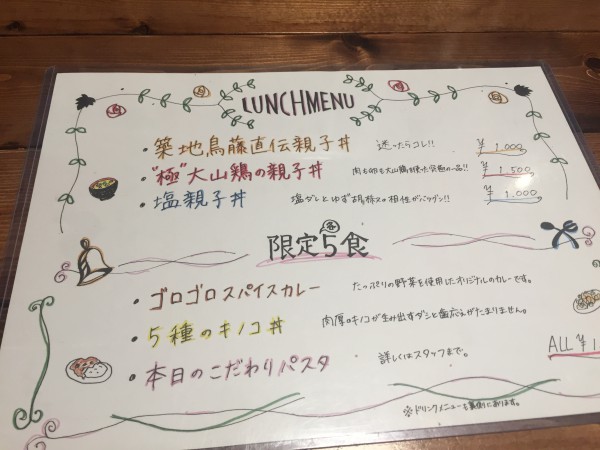 LUNCHMENU
・築地鳥藤直伝親子丼 迷ったらコレ!! ¥1,000
・"極"大山鶏の親子丼 肉も卵も大山鶏を使った究極の一品!! ¥1,500
・塩親子丼 塩ダレとゆず胡椒の相性がバツグン!! ¥1,000
限定各5食
・ゴロゴロスパイスカレー たっぷりの野菜を使用したオリジナルのカレーです。
・5種のキノコ丼 肉厚のキノコが生み出すダシと歯応えがたまりません。
・本日のこだわりパスタ 詳しくはスタッフまで。 ALL ¥1
※ドリンクメニューも裏側にあります。